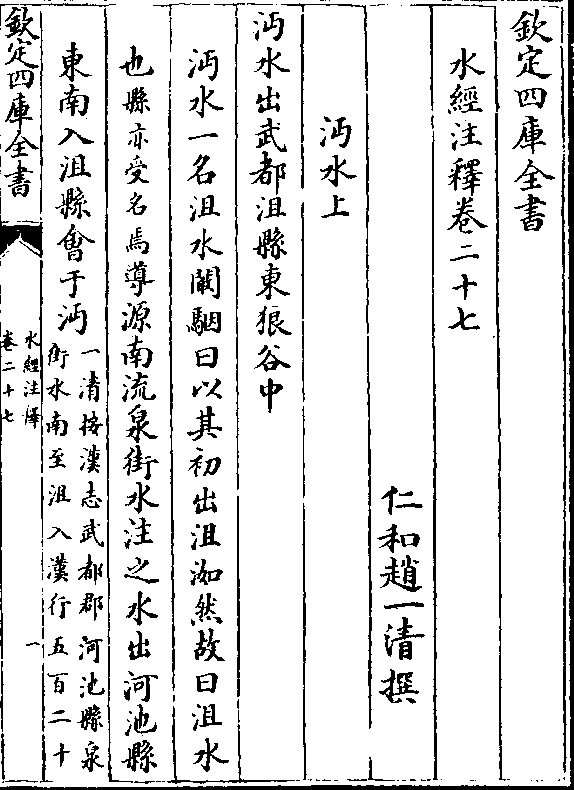 欽定四庫全書
水經注釋卷二十七
仁和趙一清撰
沔水上
沔水出武都沮縣東狼谷中
沔水一名沮水闞駰曰以其初出沮洳然故曰沮水
也縣亦受名焉導源南流泉街水注之水出河池縣
東南入沮縣會于沔一清按漢志武都郡河池縣泉
街水南至沮入漢行五百二十
欽定四庫全書
水經注釋
卷二十七
一